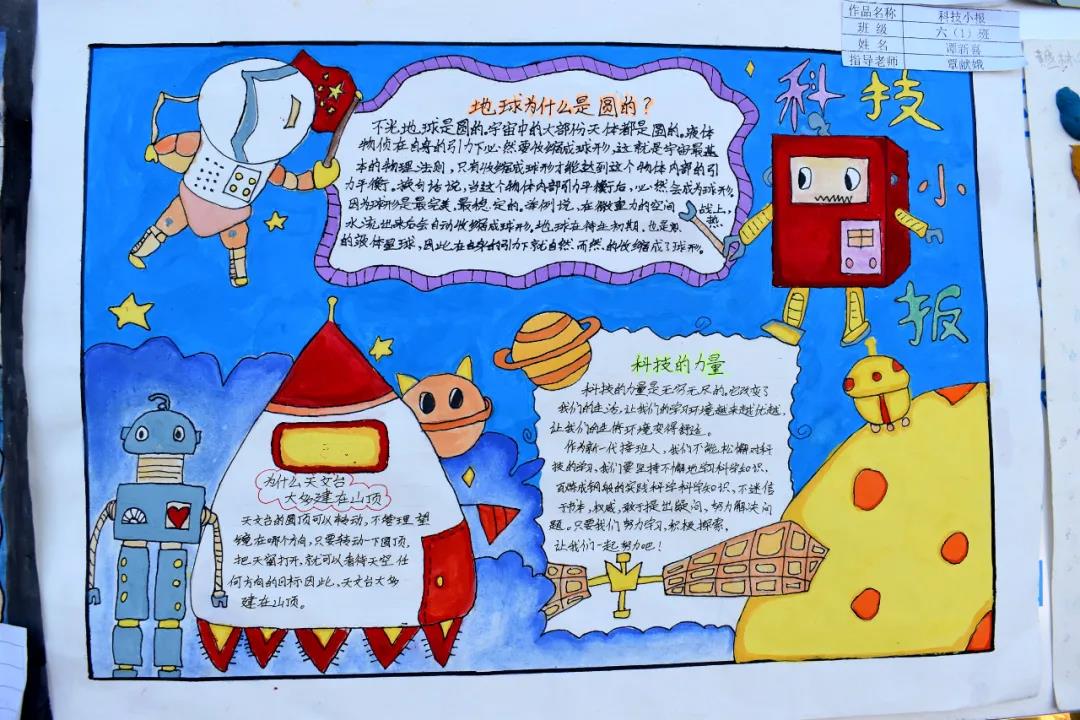 作品名称 科技小报
班级 六（1）班
姓名
指导老师 覃献娥
科技小报
地球为什么是圆的？
不光地球是圆的，宇宙中的大部份天体都是圆的。液体
物质在自身的引力下必然要收缩成球形，这就是宇宙最基
本的物理法则，只有收缩成球形才能达到这个物体内部的引
力平衡。换句话说，当这个物体内部引力平衡后，必然会成为球形。
因为球形是最完美、最稳定的。举例说，在微重力的空间站上，
水流出来后会自动收缩成球形，地球在诞生初期，也是炽热
的液体星球，因此在自身的引力下就自然而然的收缩成了球形。
为什么天文台
大多建在山顶
天文台的圆顶可以移动，不管理望
镜在哪个方向，只要转动一下圆顶，
把天窗打开，就可以看待天空任
何方向的目标因此，天文台大多
建在山顶。
科技的力量
科技的力量是无穷无尽的，它改变了
我们的生活，让我们的学习环境越来越优越，
让我们的生活环境变得舒适。
作为新一代接班人，我们不能松懈对科
技的学习，我们要坚持不懈地学习科学知识，
百炼成钢般的实践科学科学知识，不迷信
于书本，权威，敢于提出疑问，努力解决问
题。只要我们努力学习，积极探索，
让我们一起努力吧！